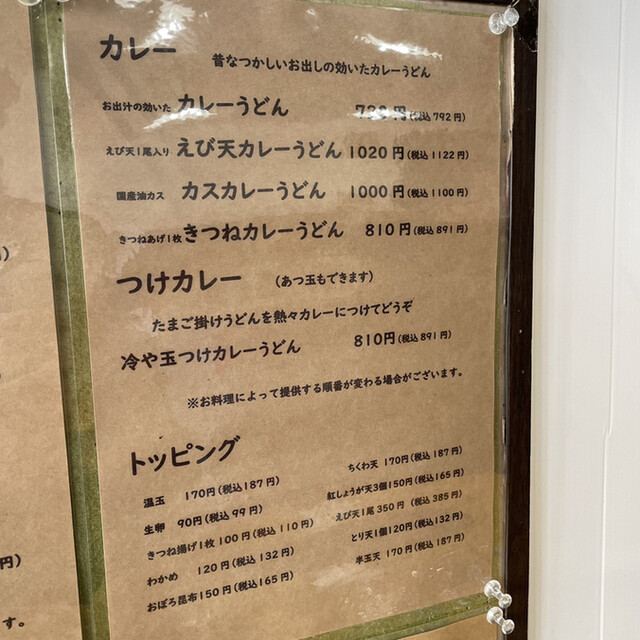 カレー
昔なつかしいお出しの効いたカレーうどん
お出汁の効いた カレーうどん 円(税込 792 円)
えび天1尾入り えび天カレーうどん 1020 円(税込 1122 円)
国産油カス カスカレーうどん 1000 円(税込 1100 円)
きつねあげ1枚 きつねカレーうどん 810 円(税込 891 円)
つけカレー (あつ玉もできます)
たまご掛けうどんを熱々カレーにつけてどうぞ
冷や玉つけカレーうどん 810円(税込 891 円)
※お料理によって提供する順番が変わる場合がございます。
トッピング
温玉 170円(税込187円)
生卵 90円(税込 99 円)
きつね揚げ1枚 100円(税込 110 円)
わかめ 120円(税込 132 円)
おぼろ昆布150 円(税込165 円)
ちくわ天 170円(税込 187 円)
紅しょうが天3個150円(税込165 円)
えび天1尾 350 円(税込 385 円)
とり天1個120円(税込132 円)
半玉天 170円(税込 187 円)
円)
す。